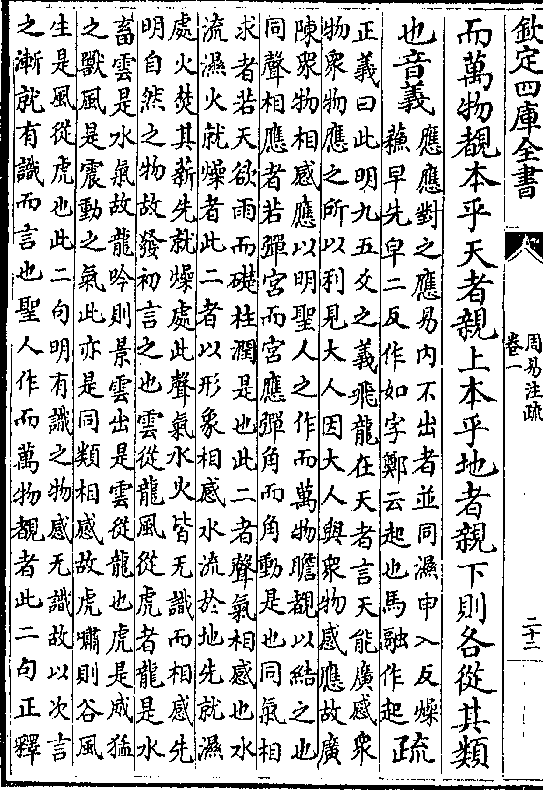 欽定四庫全書
周易注疏
卷一
二十二
而萬物覩本乎天者親上本乎地者親下則各從其類
也音義應應對之應易内不出者並同濕申入反燥
蘓早先皁二反作如字鄭云起也馬融作起疏
正義曰此明九五爻之義飛龍在天者言天能廣感衆
物衆物應之所以利見大人因大人與衆物感應故廣
陳衆物相感應以明聖人之作而萬物瞻覩以結之也
同聲相應者若彈宫而宫應彈角而角動是也同氣相
求者若天欲雨而礎柱潤是也此二者聲氣相感也水
流濕火就燥者此二者以形象相感水流於地先就濕
處火焚其薪先就燥處此聲氣水火皆无識而相感先
明自然之物故發初言之也雲從龍風從虎者龍是水
畜雲是水氣故龍吟則景雲出是雲從龍也虎是威猛
之獸風是震動之氣此亦是同類相感故虎嘯則谷風
生是風從虎也此二句明有識之物感无識故以次言
之漸就有識而言也聖人作而萬物覩者此二句正釋